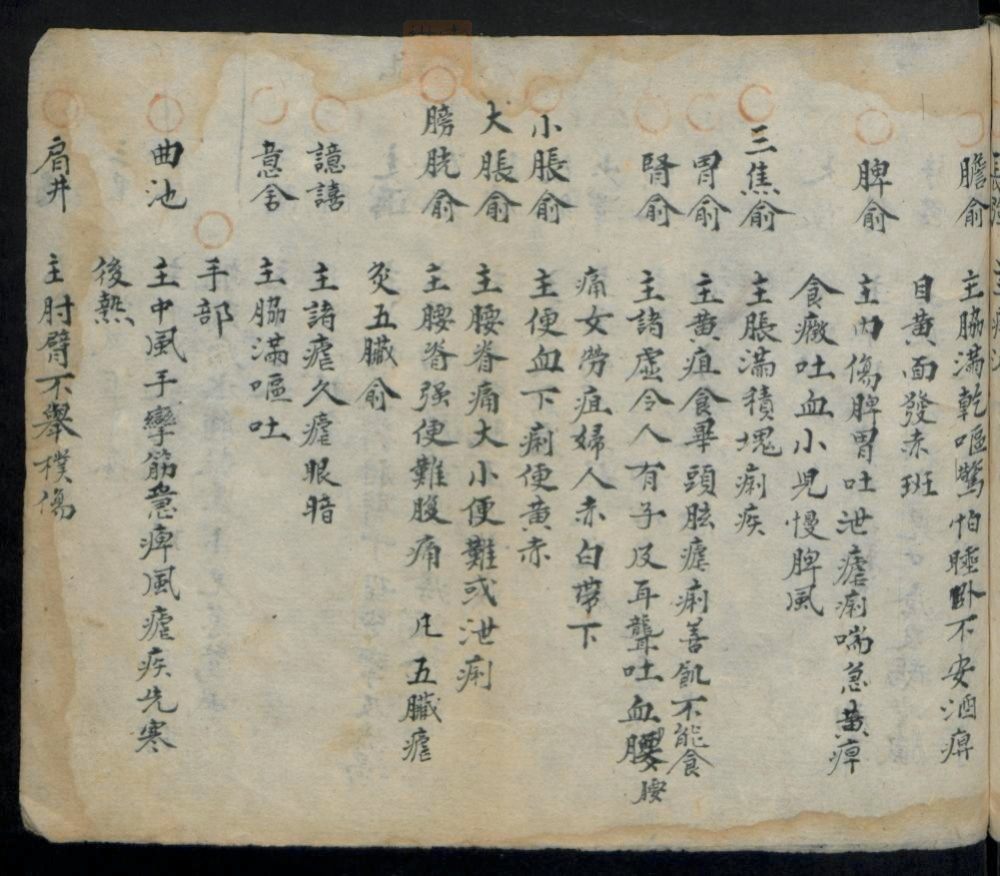 膽俞 主脇滿乾嘔驚怕睡卧不安酒疸
目黄面發赤班
脾俞 主内傷脾胃吐泄瘧痢喘急黄疸
食癥吐血小児慢脾風
三焦俞 主脹滿積塊痢疾
胃俞 主黄疸食畢頭眩瘧痢善飢不能食
腎俞 主諸虚令人有子及耳聾吐血腰腰
痛女勞疸婦人赤白帶下
小脹俞 主便血下痢便黄赤
大脹俞 主腰脊痛大小便難或泄痢
膀胱俞 主腰脊强便難腹痛 凡五臟瘧
灸五臟俞
譩譆 主諸瘧久瘧眼暗
意舍 主脇滿嘔吐
手部
曲池 主中風手攣筋急痺風瘧疾先寒
後熱
肩井 主肘臂不舉樸傷